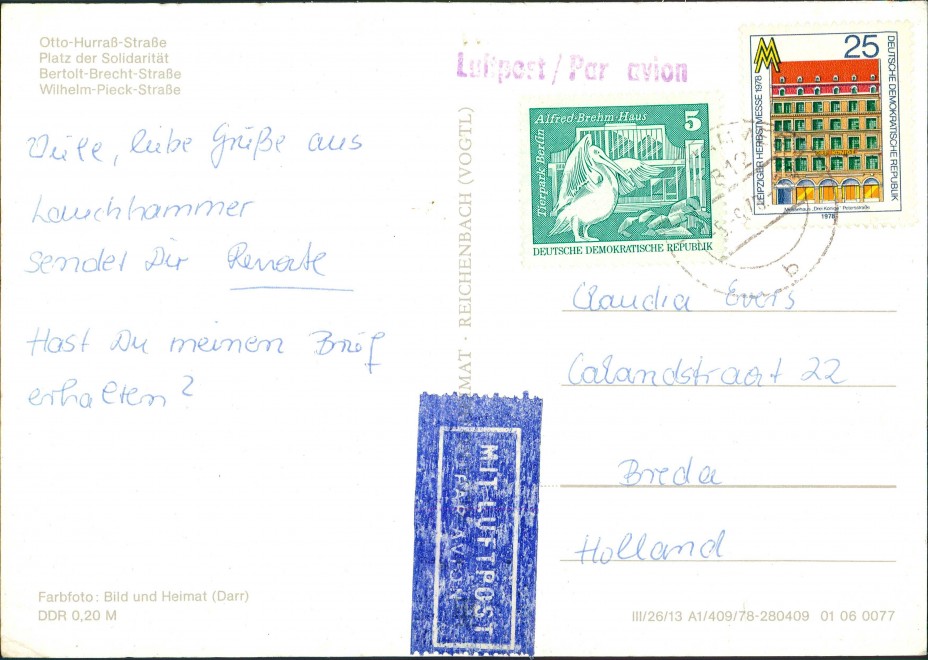 Otto-Hurraß-Straße
Platz der Solidarität
Bertolt-Brecht-Straße
Wilhelm-Pieck-Straße
Viele, liebe Grüße aus
Lauchhammer
sendet Dir Renate
Hast Du meinen Brief
erhalten?
Farbfoto: Bild und Heimat (Darr)
DDR 0,20 M
HEIMAT · REICHENBACH (VOGTL)
Luftpost / Par avion
Alfred-Brehm-Haus
5
Tierpark Berlin
DEUTSCHE DEMOKRATISCHE REPUBLIK
MM
25
LEIPZIGER HERBSTMESSE 1978
DEUTSCHE DEMOKRATISCHE REPUBLIK
Messehaus „Drei Könige“ Petersstraße
1978
b
Claudia Evers
Calandstraat 22
Breda
Holland
MIT LUFTPOST
PAR AVION
III/26/13 A1/409/78-280409 01 06 0077